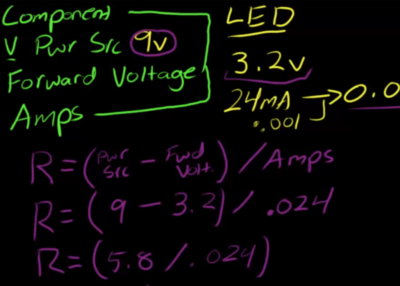 Component
V Pwr Src 9v
Forward Voltage
Amps
LED
3.2v
24mA → 0.0
.001
R = (Pwr Src - Fwd Volt.) / Amps
R = (9 - 3.2) / .024
R = (5.8 / .024)